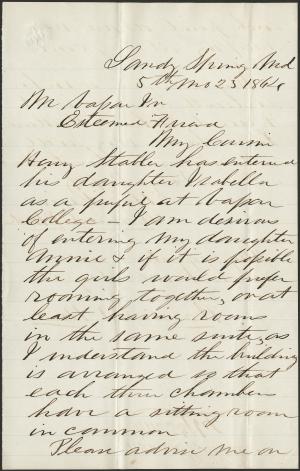 Sandy Spring Md
5th mo 23 186
M. Vassar Jnr
Esteemed Friend
My Cousin
Henry Stabler has entered
his daughter Isabella
as a pupil at Vassar
College – I am desirous
of entering my daughter
Annie & if it is possible
the girls would prefer
rooming together, or at
least having rooms
in the same suite, as
I understand the building
is arranged so that
each three chambers
have a sitting room
in common
Please advise me on